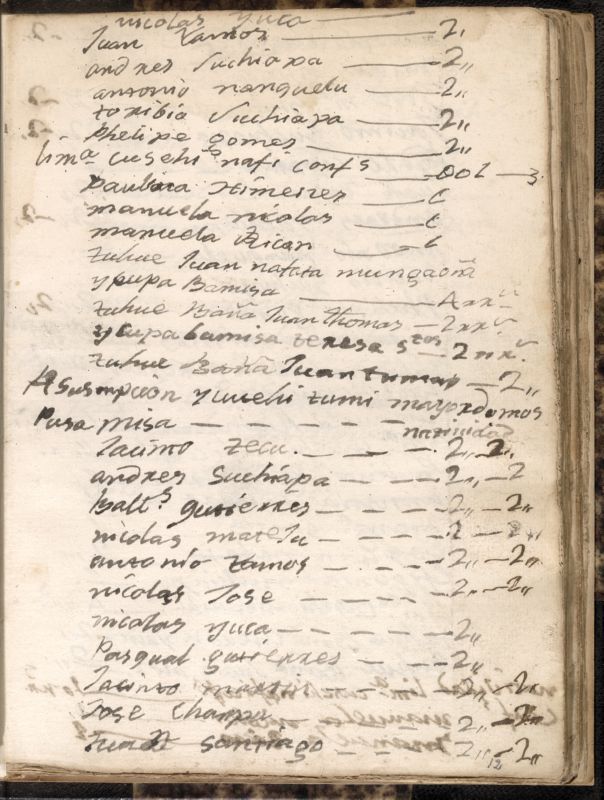 nicolas yuca —
Juan Ramos — 2,,
andres Suchiapa — 2,,
antonio nanguelu — 2,,
toribio Suchiapa — 2,,
phelipe gomes — 2,,
lim.ª cuschi nafi conf.s — 002 — 3
paulina ximenes — c
manuela nicolas — c
manuela Rican — c
zuhue Juan natata
y pupa Bamisa — 4 rr.s
zuhue Baña Juan thomas — 2 rr.s
y cupa bamisa teresa s.tos — 2 rr.s
zuhue Baña Juan tumas — 2,,
Asumpcion y cuschi zumi mayordomos
Para misa — — — — — natividad
Jacinto zecu. — — — 2,, 2,,
andres Suchiapa — — — 2,, — 2
Balt.s gutierres — — — 2,, — 2,,
nicolas — — — 2 — 2,,
antonio Ramos — — — 2,, — 2,,
nicolas Jose — — — — 2,, — 2,,
nicolas yuca — — — — 2,,
Pasqual gutierres — — — 2,,
Jacinto — 2,, — 2,,
Jose Champu 2,, — 2,,
Juan santiago — — 2,, — 2,,
12